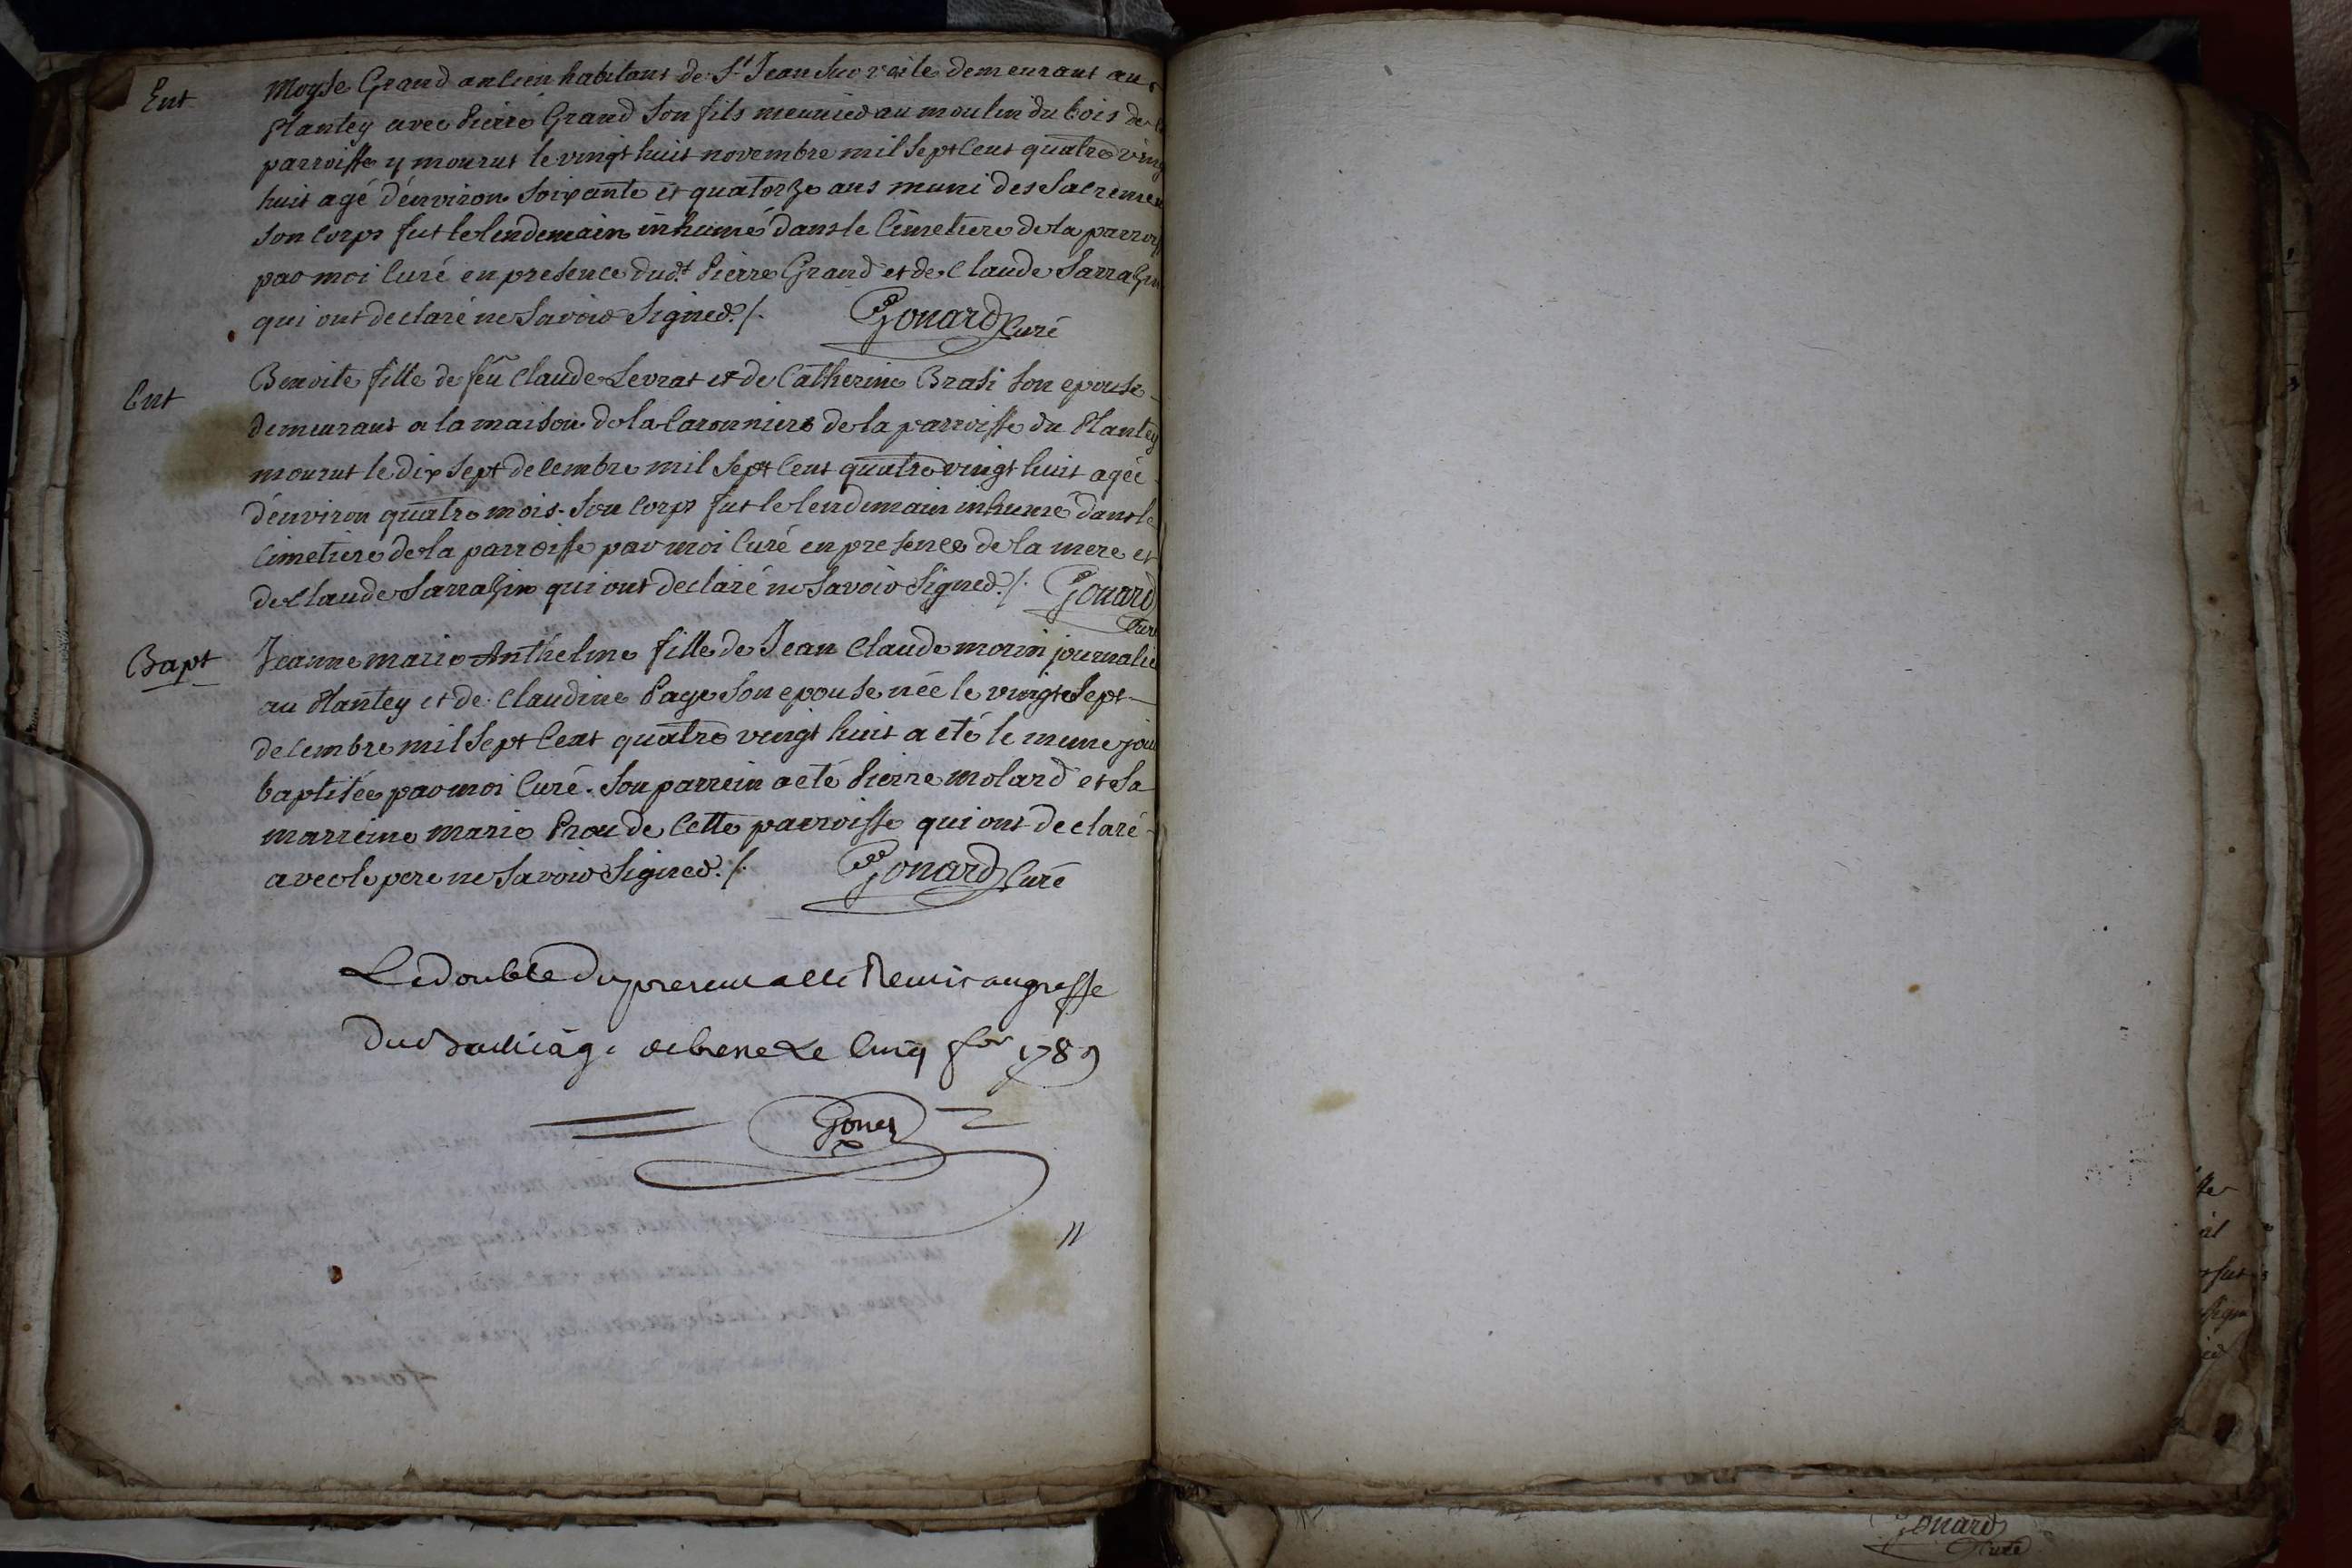 Ent
Moyse Grand ancien habitant de St Jean sur veile demeurant au
Plantey avec Pierre Grand son fils meunier au moulin du bois de
parroisse y mourut le vingt huit novembre mil sept cent quatre ving
huit agé d'environ soixante et quatorze ans muni des sacremen
son corps fut le lendemain inhumé dans le cimetiere de la parrois
par moi curé en presence dudt Pierre Grand et de Claude Sarrazin
qui ont declaré ne savoir signer ./. Gonard curé
Ent
Benoite fille de feu Claude Levrat et de Catherine Brasi son epouse
demeurant a la maison de la Caronniere de la parroisse du Plantey
mourut le dix sept decembre mil sept cent quatre vingt huit agée
d'environ quatre mois. son corps fut le lendemain inhumé dans le
cimetiere de la parroisse par moi curé en presence de la mere et
de Claude Sarrazin qui ont declaré ne savoir signer ./. Gonard
curé
Bapt
Jeanne marie Anthelme fille de Jean Claude morin journalie
au Plantey et de Claudine Page son epouse née le vingt sept
decembre mil sept cent quatre vingt huit a eté le meme jou
baptisée par moi curé. son parrein a eté Pierre molard et sa
marreine marie Proude cette parroisse qui ont declaré
avec le pere ne savoir signer ./. Gonard curé
Le double du present a été Remis au greffe
du Bailliage de bresse Le cinq 1789
Gonard
curé